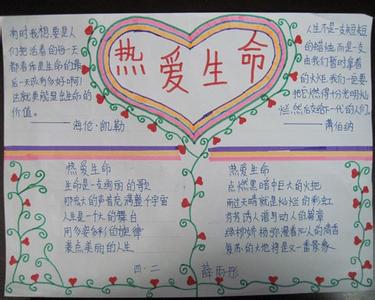 热爱生命
有时我想,要是人
们把活着的每一天
都看作是生命的最
后一天该有多好啊!
这就更能显出生命的
价值。
——海伦·凯勒
人生不是一支短短
的蜡烛,而是一支
由我们暂时拿着
的火炬,我们一定要
把它燃得十分光明灿
烂,然后交给下一代的人们。
——萧伯纳
热爱生命
生命是一支绚丽的歌
那悠长的声音充满整个宇宙
人生是一个大的舞台
用多姿多彩的旋律
装点美丽的人生
热爱生命
点燃黑暗中巨大的火把
雨过天晴就是灿烂的彩虹
复苏的大地将是又一番景象
四·二